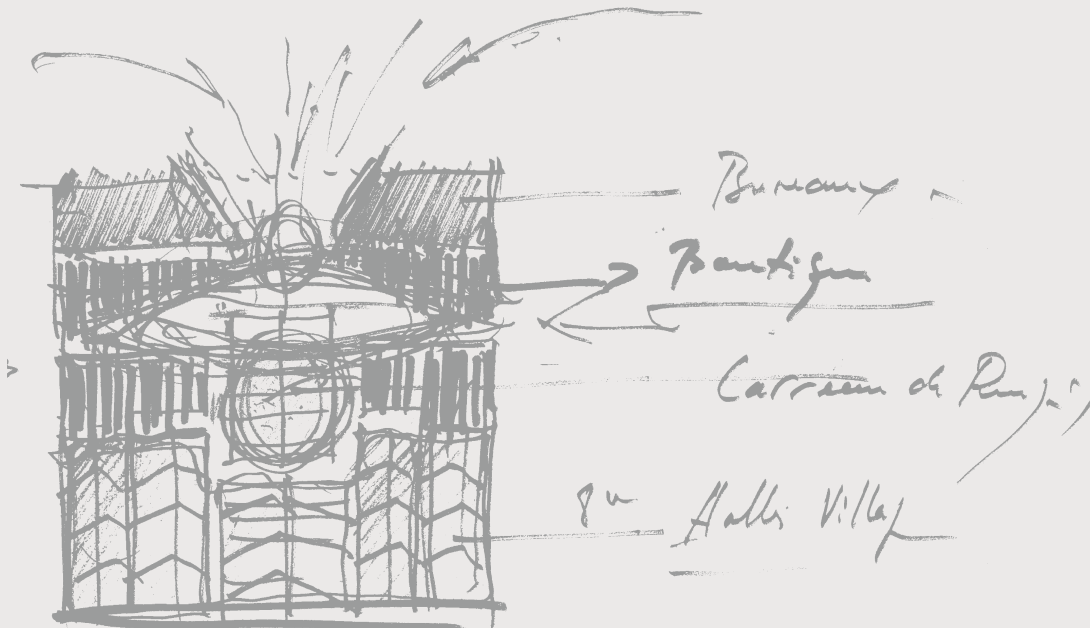 Bureaux
Boutique
Carreau de Rungis
Halles Village